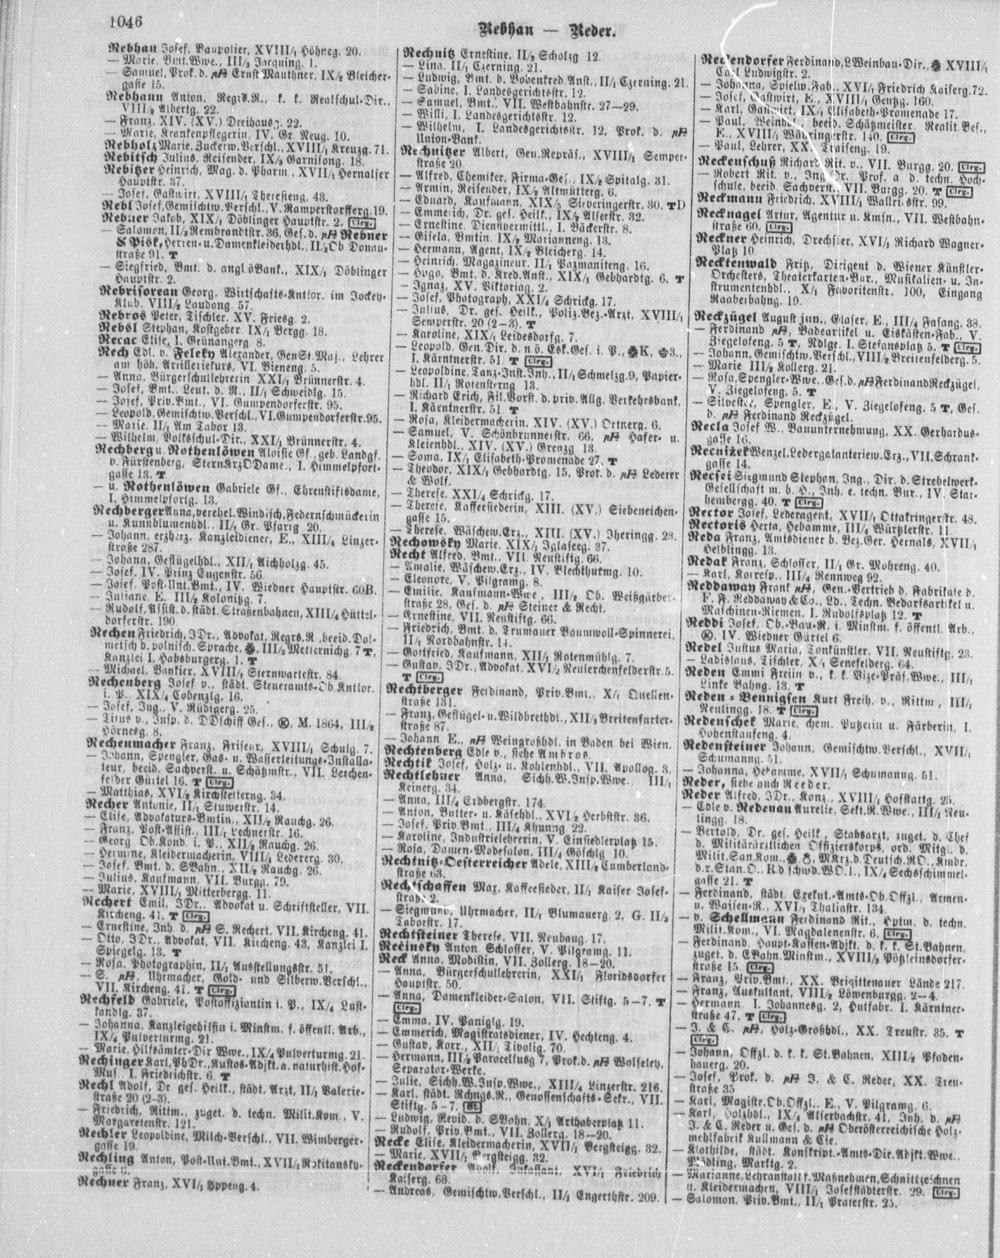 1046
Rebhan — Reder.
Rebhan Josef, Baupolier, XVIII/1 Höhneg. 20.
— Marie, Bmt.Wwe., III/2 Jacquing. 1.
— Samuel, Prok. d. Ernst Mauthner, IX/2 Bleicher-
gasse 15.
Rebhann Anton, Regis.R., k. k. Realschul-Dir.,
VIII/2 Albertg. 22.
— Franz, XIV. (XV.) Dreihausg. 22.
— Marie, Krankenpflegerin, IV. Gr. Neug. 10.
Rebholz Marie, Zuckerw.Verschl., XVIII/1 Kreuzg. 71.
Rebitsch Julius, Reisender, IX/2 Garnisong. 18.
Rebitzer Heinrich, Mag. d. Pharm., XVII/1 Hernalser
Hauptstr. 37.
— Josef, Gastwirt, XVIII/1 Theresieng. 43.
Rebl Josef, Gemischtw.Verschl., V. Ramperstorfferg. 19.
Rebner Jakob, XIX/2 Döblinger Hauptstr. 2. Clrg.
— Salomon, II/2 Rembrandtstr. 36, Ges. d. Rebner
& Pisk, Herren- u. Damenkleiderhdl., II/2 Ob. Donau-
straße 91. T
— Siegfried, Bmt. d. angl.öBank., XIX/1 Döblinger
Hauptstr. 2.
Rebrisorean Georg, Wirtschafts-Kntlor. im Jockey-
Klub, VIII/2 Laudong. 57.
Rebros Peter, Tischler, XV. Friesg. 2.
Rebsl Stephan, Kostgeber, IX/2 Bergg. 18.
Recac Elise, I. Grünangerg. 8.
Rech Edl. v. Felekÿ Alexander, GenSt.Maj., Lehrer
am höh. Artilleriekurs, VI. Bieneng. 5.
— Anna, Bürgerschullehrerin, XXI/1 Brünnerstr. 4.
— Josef, Bmt., Leut. d. R., II/2 Schweidlg. 15.
— Josef, Priv.Bmt., VI. Gumpendorferstr. 95.
— Leopold, Gemischtw.Verschl., VI. Gumpendorferstr. 95.
— Marie, II/1 Am Tabor 13.
— Wilhelm, Volksschul-Dir., XXI/1 Brünnerstr. 4.
Rechberg u. Rothenlöwen Aloisie Gf., geb. Landgf.
v. Fürstenberg, SternKrzODame., I. Himmelpfort-
gasse 13. T
— u. Rothenlöwen Gabriele Gf., Ehrenstiftsdame,
I. Himmelpfortg. 13.
Rechberger Anna, verehel. Windisch, Federnschmückerin
u. Kunstblumenhdl., II/1 Gr. Pfarrg. 20.
— Johann, erzherz. Kanzleidiener, E., XIII/4 Linzer-
straße 287.
— Johann, Geflügelhdl., XII/1 Aichholzg. 45.
— Josef, IV. Prinz Eugenstr. 56.
— Josef, Post-Unt.Bmt., IV. Wiedner Hauptstr. 60B.
— Juliane, E., III/2 Kolonitzg. 7.
— Rudolf, Assist. d. städt. Straßenbahnen, XIII/4 Hüttel-
dorferstr. 190.
Rechen Friedrich, JDr., Advokat, Regrs.R., beeid. Dol-
metsch d. polnisch. Sprache, III/3 Metternichg. 7 T,
Kanzlei I. Habsburgerg. 1. T
— Michael, Bankier, XVIII/1 Sternwartestr. 84.
Rechenberg Josef v., städt. Steueramts-Ob.Kntlor.
i. P., XIX/4 Cobenzlg. 16.
— Josef, Ing., V. Rüdigerg. 25.
— Titus v., Insp. d. DDschiff.Ges., M. 1864, III/2
Hörnesg. 8.
Rechenmacher Franz, Friseur, XVIII/1 Schulg. 7.
— Johann, Spengler, Gas- u. Wasserleitungs-Installa-
teur, beeid. Sachverst. u. Schätzmstr., VII. Lerchen-
felder Gürtel 16. T Clrg.
— Matthias, XVI/2 Kirchstetterng. 34.
Recher Antonie, II/1 Stuwerstr. 14.
— Elise, Advokaturs-Bmtin., XII/4 Rauchg. 26.
— Franz, Post-Assist., III/1 Lechnerstr. 16.
— Georg, Ob.Kond. i. P., XII/4 Rauchg. 26.
— Hermine, Kleidermacherin, VIII/2 Ledererg. 30.
— Josef, Bmt. d. SBahn., XII/4 Rauchg. 26.
— Julius, Kaufmann, VII. Burgg. 79.
— Marie, XVIII/1 Mitterbergg. 11.
Rechert Emil, JDr., Advokat u. Schriftsteller, VII.
Kircheng. 41. T Clrg.
— Ernestine, Inh. d. S. Rechert, VII. Kircheng. 41.
— Otto, JDr., Advokat, VII. Kircheng. 43, Kanzlei I.
Spiegelg. 13. T
— Rosa, Photographin, II/1 Ausstellungsstr. 51.
— S., Uhrmacher, Gold- und Silberw.Verschl.,
VII. Kircheng. 41. T Clrg.
Rechfeld Gabriele, Postoffiziantin i. P., IX/4 Last-
kandlg. 37.
— Johanna, Kanzleigehilfin i. Minstm. f. öffentl. Arb.,
IX/4 Pulverturmg. 21.
— Marie, Hilfsämter-Dir.Wwe., IX/4 Pulverturmg. 21.
Rechinger Karl, Ph.Dr., Kustos-Adjkt. a. naturhist. Hof-
Mus., I. Friedrichstr. 6. T
Rechl Adolf, Dr. ges. Heilk., städt. Arzt, II/1 Valerie-
straße 20 (2–3).
— Friedrich, Rittm., zuget. d. techn. Milit.Kom., V.
Margaretenstr. 121.
Rechler Leopoldine, Milch-Verschl., VII. Wimberger-
gasse 19.
Rechling Anton, Post-Unt.Bmt., XVII/1 Rokitansky-
gasse 6.
Rechner Franz, XVI/1 Eppeng. 4.
Rechnitz Ernestine, II/2 Scholzg. 12.
— Lina, II/1 Czerning. 21.
— Ludwig, Bmt. d. Bodenkred.Anst., II/1 Czerning. 21.
— Sabine, I. Landesgerichtsstr. 12.
— Samuel, Bmt., VII. Westbahnstr. 27–29.
— Willi, I. Landesgerichtsstr. 12.
— Wilhelm, I. Landesgerichtsstr. 12, Prok. d.
Union-Bank.
Rechnitzer Albert, Gen.Repräs., XVIII/1 Semper-
straße 20.
— Alfred, Chemiker, Firma-Ges., IX/2 Spitalg. 31.
— Armin, Reisender, IX/2 Altmütterg. 6.
— Eduard, Kaufmann, XIX/3 Sieveringerstr. 30. TD
— Emmerich, Dr. ges. Heilk., IX/4 Alserstr. 32.
— Ernestine, Dienstvermittl., I. Bäckerstr. 8.
— Gisela, Bmtin., IX/2 Marianneng. 13.
— Hermann, Agent, IX/2 Bleicherg. 14.
— Heinrich, Magazineur, II/1 Pazmaniteng. 16.
— Hugo, Bmt. d. Kred.Anst., XIX/1 Gebhardtg. 6. T
— Ignaz, XV. Viktoriag. 2.
— Josef, Photograph, XXI/4 Schrickg. 17.
— Julius, Dr. ges. Heilk., Poliz.Bez.-Arzt, XVIII/1
Semperstr. 20 (2–3). T
— Karoline, XIX/1 Leidesdorfg. 7.
— Leopold, Gen.Dir. d. n. ö. Esk.Ges. i. P., K, 3.,
I. Kärntnerstr. 51. T Clrg.
— Leopoldine, Tanz-Inst.Inh., II/1 Schmelzg. 9, Papier-
hdl., II/1 Rotensterng. 13.
— Richard Erich, Fil.Vorst. d. priv. Allg. Verkehrsbank,
I. Kärntnerstr. 51. T
— Rosa, Kleidermacherin, XIV. (XV.) Ortnerg. 6.
— Samuel, V. Schönbrunnerstr. 66, Hafer- u.
Kleienhdl., XIV. (XV.) Grenzg. 13.
— Soma, IX/4 Elisabeth-Promenade 27. T
— Theodor, XIX/1 Gebhardtg. 15, Prok. d. Lederer
& Wolf.
— Therese, XXI/4 Schrickg. 17.
— Therese, Kaffeesiederin, XIII. (XV.) Siebeneichen-
gasse 15.
— Therese, Wäschew.Erz., XIII. (XV.) Iheringg. 23.
Rechowsky Marie, XIX/1 Iglaseeg. 37.
Recht Alfred, Bmt., VII. Neustiftg. 66.
— Amalie, Wäschew.Erz., IV. Blechturmg. 10.
— Eleonore, V. Pilgramg. 8.
— Emilie, Kaufmanns-Wwe., III/2 Ob. Weißgärber-
straße 28, Ges. d. Steiner & Recht.
— Ernestine, VII. Neustiftg. 66.
— Friedrich, Bmt. d. Trumauer Baumwoll-Spinnerei,
II/1 Nordbahnstr. 14.
— Gottfried, Kaufmann, XII/1 Rotenmühlg. 7.
— Gustav, JDr., Advokat, XVI/2 Neulerchenfelderstr. 5.
T Clrg.
Rechtberger Ferdinand, Priv.Bmt., X/1 Quellen-
straße 131.
— Franz, Geflügel- u. Wildbrethdl., XII/2 Breitenfurter-
straße 87.
— Johann E., Weingroßhdl. in Baden bei Wien.
Rechtenberg Edle v., siehe Ambros.
Rechtik Josef, Holz- u. Kohlenhdl., VII. Apollog. 3.
Rechtlehner Anna, Sichh.W.Insp.Wwe., III/1
Keinerg. 34.
— Anna, III/4 Erdbergstr. 174.
— Anton, Butter- u. Käsehdl., XVI/2 Herbststr. 36.
— Josef, Priv.Bmt., III/4 Khunng. 22.
— Karoline, Industrielehrerin, V. Einsiedlerplatz 15.
— Rosa, Damen-Modesalon, III/4 Göschlg. 10.
Rechtnitz-Oesterreicher Adele, XIII/2 Cumberland-
straße 63.
Rechtschaffen Max, Kaffeesieder, II/1 Kaiser Josef-
straße 2.
— Siegmund, Uhrmacher, II/1 Blumauerg. 2, G. II/2
Taborstr. 17.
Rechtsteiner Therese, VII. Neubaug. 17.
Recinsky Anton, Schlosser, V. Pilgramg. 11.
Reck Anna, Modistin, VII. Zollerg. 18–20.
— Anna, Bürgerschullehrerin, XXI/1 Floridsdorfer
Hauptstr. 50.
— Anna, Damenkleider-Salon, VII. Stiftg. 5–7. T
Clrg.
— Emma, IV. Paniglg. 19.
— Emmerich, Magistratsdiener, IV. Hechteng. 4.
— Gustav, Korr., XII/1 Tivolig. 70.
— Hermann, III/2 Parcellusg. 7, Prok. d. Wolseley,
Separator-Werke.
— Julie, Sichh.W.Insp.Wwe., XIII/4 Linzerstr. 216.
— Karl, städt. Rchngs.R., Genossenschafts-Sekr., VII.
Stiftg. 5–7.
— Ludwig, Revid. d. SBahn., X/2 Arthaberplatz 11.
— Rudolf, Priv.Bmt., VII. Zollerg. 18–20.
Recke Elise, Kleidermacherin, XVII/1 Bergsteigg. 32.
— Marie, XVII/1 Bergsteigg. 32.
Reckendorfer Adolf, Inkassant, XVI/1 Friedrich
Kaiserg. 66.
— Andreas, Gemischtw.Verschl., II/1 Engerthstr. 209.
Reckendorfer Ferdinand, l. Weinbau-Dir., XVIII/1
Carl Ludwigstr. 2.
— Johanna, Spielw.Fab., XVI/1 Friedrich Kaiserg. 72.
— Josef, Gastwirt, E., XVIII/1 Gentzg. 160.
— Karl, Gastwirt, IX/4 Elisabeth-Promenade 17.
— Paul, Weinhdl., beeid. Schätzmeister, Realit.Bes.,
E., XVIII/1 Währingerstr. 140. Clrg.
— Paul, Lehrer, XX. Traiseng. 19.
Reckenschuß Richard Rit. v., VII. Burgg. 20. Clrg.
— Robert Rit. v., Ing., Dr., Prof. a. d. techn. Hoch-
schule, beeid. Sachverst., VII. Burgg. 20. T Clrg.
Reckmann Friedrich, XVIII/1 Wallrißstr. 99.
Recknagel Artur, Agentur u. Kmsn., VII. Westbahn-
straße 60. Clrg.
Reckner Heinrich, Drechsler, XVI/1 Richard Wagner-
Platz 10.
Recktenwald Fritz, Dirigent d. Wiener Künstler-
Orchesters, Theaterkarten-Bur., Musikalien- u. In-
strumentenhdl., X/1 Favoritenstr. 100, Eingang
Raaberbahng. 19.
Reckzügel August jun., Glaser, E., III/4 Fasang. 38.
— Ferdinand, Badeartikel u. Eiskästen-Fab., V.
Ziegelofeng. 5 T, Ndlge. I. Stefansplatz 5. T Clrg.
— Johann, Gemischtw.Verschl., VIII/2 Breitenfelderg. 5.
— Marie, III/4 Kollerg. 21.
— Rosa, Spengler-Wwe., Ges. d. Ferdinand Reckzügel,
V. Ziegelofeng. 5. T
— Silvester, Spengler, E., V. Ziegelofeng. 5 T, Ges.
d. Ferdinand Reckzügel.
Recla Josef W., Bauunternehmung, XX. Gerhardus-
gasse 16.
Recnitzek Wenzel, Ledergalanteriew.Erz., VII. Schrank-
gasse 14.
Recsei Siegmund Stephan, Ing., Dir. d. Strebelwerk-
Gesellschaft m. b. H., Inh. e. techn. Bur., IV. Star-
hembergg. 40. T Clrg.
Rector Josef, Lederagent, XVII/1 Ottakringerstr. 48.
Rectoris Herta, Hebamme, III/4 Würtzlerstr. 11.
Reda Franz, Amtsdiener b. Bez.Ger. Hernals, XVII/1
Helblingg. 13.
Redak Franz, Schlosser, II/1 Gr. Mohreng. 40.
— Karl, Korresp., III/4 Rennweg 92.
Reddaway Frank, Gen.-Vertrieb d. Fabrikate d.
F. F. Reddaway & Co., Ld., Techn. Bedarfsartikel u.
Maschinen-Riemen, I. Rudolfsplatz 12. T
Reddi Josef, Ob.-Bau-R. i. Minstm. f. öffentl. Arb.,
IV. Wiedner Gürtel 6.
Redel Justus Maria, Tonkünstler, VII. Neustiftg. 23.
— Ladislaus, Tischler, X/1 Senefelderg. 64.
Reden Emmi Freiin v., k. k. Vize-Präs.Wwe., III/1
Linke Bahng. 13. T
Reden-Bennigsen Kurt Freih. v., Rittm., III/1
Neulingg. 18. T Clrg.
Redenschek Marie, chem. Putzerin u. Färberin, I.
Hohenstaufeng. 4.
Redensteiner Johann, Gemischtw.Verschl., XVII/1
Schumanng. 51.
— Johanna, Hebamme, XVII/1 Schumanng. 51.
Reder, siehe auch Reeder.
Reder Alfred, JDr., Konz., XVIII/1 Hofstattg. 25.
— Edle v. Redenau Aurelie, Sekt.R.Wwe., III/1 Neu-
lingg. 18.
— Bertold, Dr. ges. Heilk., Stabsarzt, zuget. d. Chef
d. Militärärztlichen Offizierskorps, ord. Mitgl. d.
Milit.San.Kom., MKrz.d.Deutsch.RO., Kmdr.
d.r.Stan.O., Rd.schwd.WO.1., IX/4 Sechsschimmel-
gasse 21. T
— Ferdinand, städt. Exekut.-Amts-Ob.Offzl., Armen-
u. Waisen-R., XVI/1 Thaliastr. 134.
— v. Schellmann Ferdinand Rit., Hptm. d. techn.
Milit.Kom., VI. Magdalenenstr. 6. Clrg.
— Ferdinand, Haupt-Kassen-Adjkt. d. k. k. St.Bahnen,
zuget. d. EBahn.Minstm., XVIII/3 Pötzleinsdorfer-
straße 15. Clrg.
— Franz, Priv.Bmt., XX. Brigittenauer Lände 217.
— Franz, Auskultant, VIII/2 Löwenburgg. 2–4.
— Hermann, I. Johannesg. 2, Hutfabr. I. Kärntner-
straße 47. T Clrg.
— J. & C., Holz-Großhdl., XX. Treustr. 35. T
Clrg.
— Johann, Offzl. d. k. k. St.Bahnen, XIII/2 Pfaden-
hauerg. 20.
— Josef, Prok. d. J. & C. Reder, XX. Treu-
straße 35.
— Karl, Magistr.Ob.Offzl., E., V. Pilgramg. 6.
— Karl, Holzhdl., IX/4 Alserbachstr. 41, Inh. d.
J. & C. Reder u. Ges. d. Oberösterreichische Holz-
mehlfabrik Kullmann & Cie.
— Klothilde, städt. Konskript.-Amts-Dir.Adjkt.Wwe.,
Mödling, Marktg. 2.
— Marianne, Lehranstalt f. Maßnehmen, Schnittzeichnen
u. Kleidermachen, VIII/1 Josefstädterstr. 29. Clrg.
— Salomon, Priv.Bmt., II/1 Praterstr. 25.